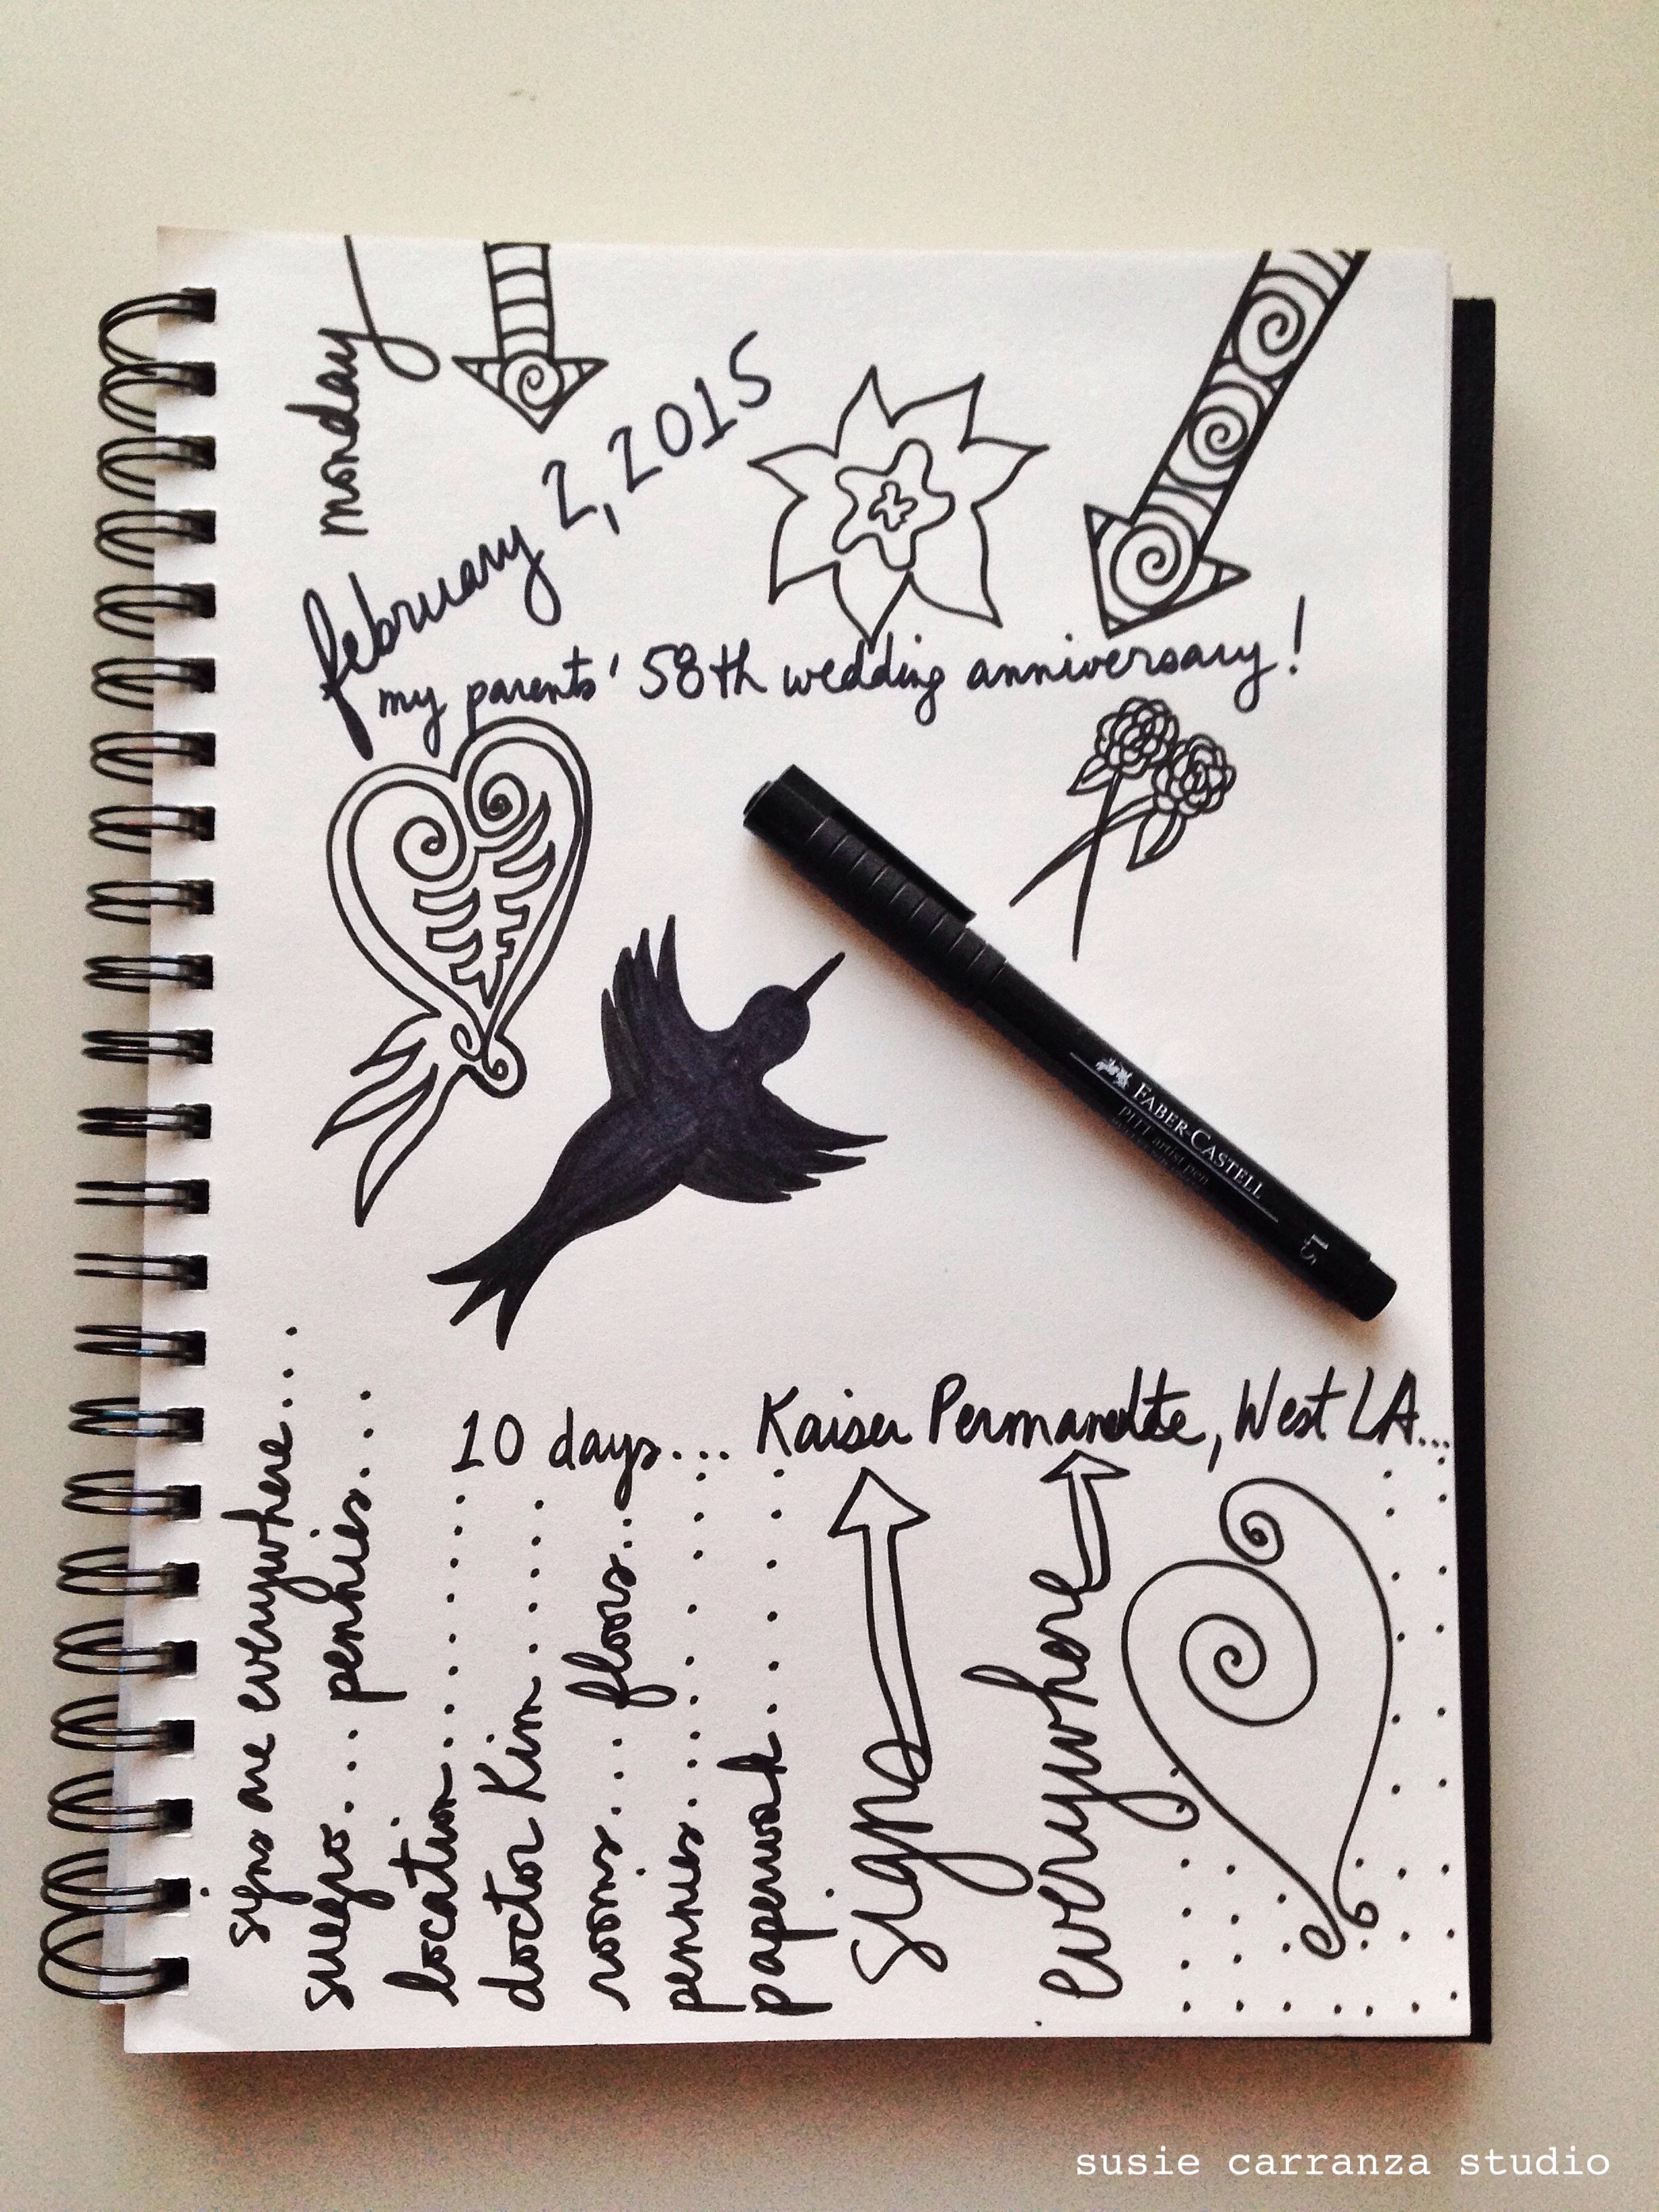 monday
february 2, 2015
my parents' 58th wedding anniversary!
FABER-CASTELL
PITT artist pen
1.5
10 days... Kaiser Permanente, West LA...
signs are everywhere...
suegro... pennies...
location........
doctor Kim.....
rooms... floors...
pennies........
paperwork.......
signs
everywhere
susie carranza studio